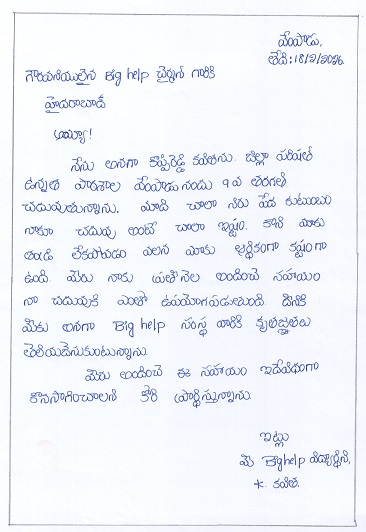 వేంపాడు,
తేది: 18/2/2016.
గౌరవనీయులైన Big help చైర్మన్ గారికి
హైదరాబాద్
అయ్యా!
నేను అనగా కొప్పిరెడ్డి కవితను. జిల్లా పరిషత్
ఉన్నత పాఠశాల వేంపాడు నందు 9 వ తరగతి
చదువుతున్నాను. మాది చాలా నిరు పేద కుటుంబం
నాకూ చదువు అంటే చాలా ఇష్టం. కాని మాకు
తండ్రి లేకపోవడం వలన మాకు ఆర్థికంగా కష్టంగా
ఉంది. మీరు నాకు ప్రతినెల అందించే సహాయం
నా చదువుకి ఎంతో ఉపయోగపడుతుంది. దీనికి
మీకు అనగా Big help సంస్థ వారికి కృతజ్ఞతలు
తెలియజేసుకుంటున్నాను.
మీరు అందించే ఈ సహాయం ఇదేవిధంగా
కొనసాగించాలని కోరి ప్రార్థిస్తున్నాను.
ఇట్లు
మీ Big help విద్యార్థిని,
K. కవిత.